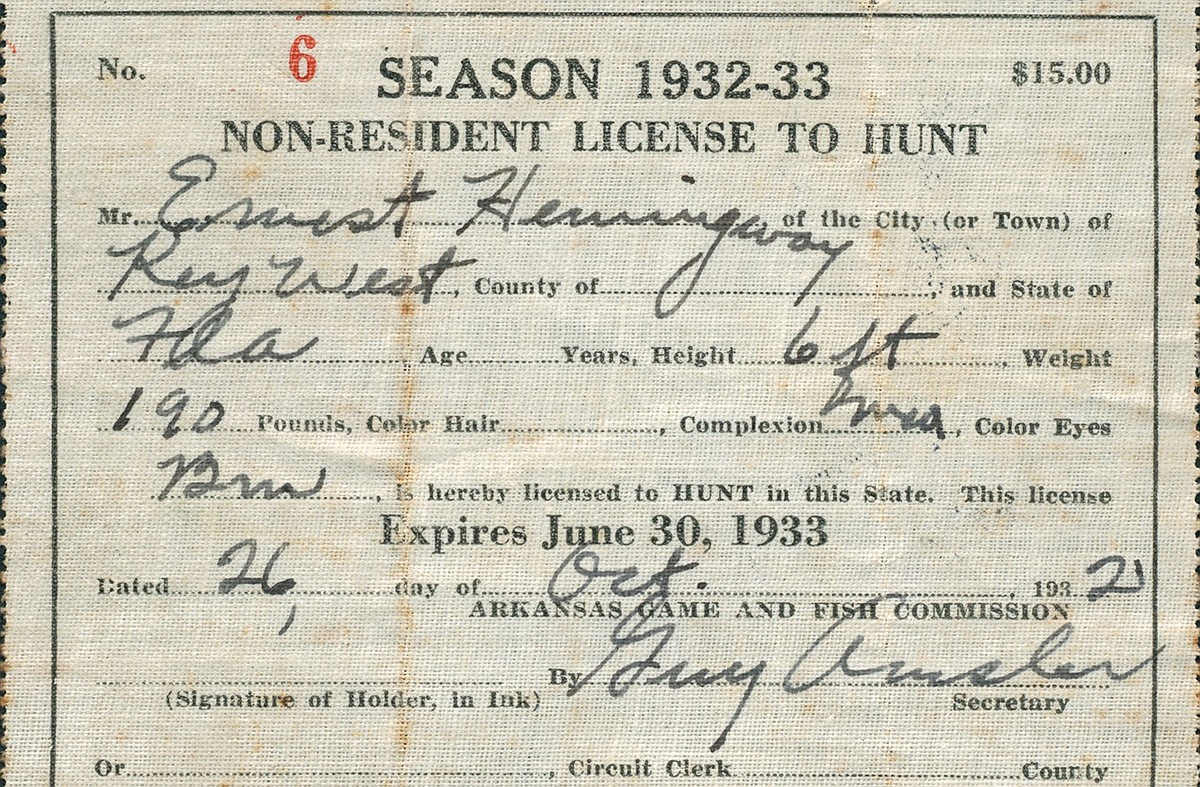 No. 6 SEASON 1932-33 $15.00
NON-RESIDENT LICENSE TO HUNT
Mr. Ernest Hemingway of the City (or Town) of
Key West, County of , and State of
Fla , Age Years, Height 6 ft , Weight
190 Pounds, Color Hair , Complexion , Color Eyes
Brn , is hereby licensed to HUNT in this State. This license
Expires June 30, 1933
Dated 26, day of Oct. , 1932
ARKANSAS GAME AND FISH COMMISSION
By Guy Amsler
(Signature of Holder, in Ink) Secretary
Or , Circuit Clerk County